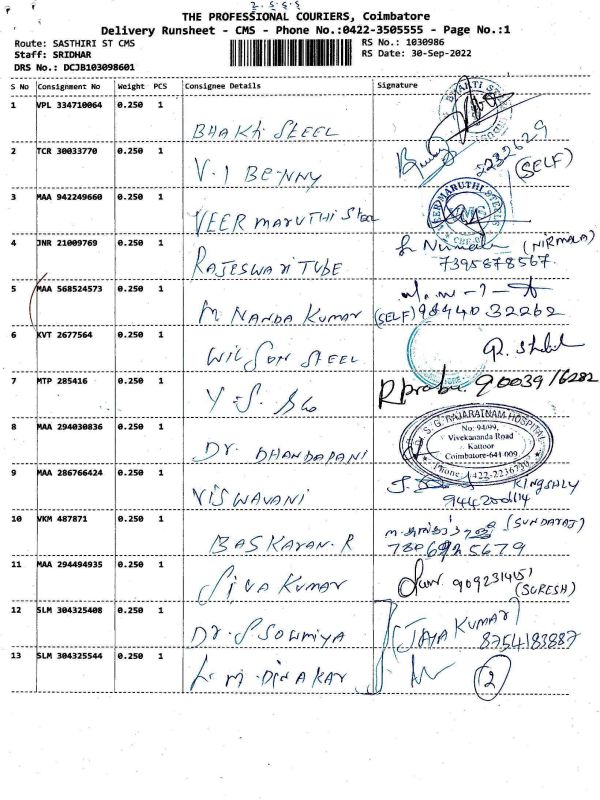 THE PROFESSIONAL COURIERS, Coimbatore
Delivery Runsheet - CMS - Phone No.:0422-3505555 - Page No.:1
Route: SASTHIRI ST CMS
RS No.: 1030986
Staff: SRIDHAR
RS Date: 30-Sep-2022
DRS No.: DCJB103098601
S No Consignment No Weight PCS Consignee Details Signature
1 VPL 334710064 0.250 1 BHAKti STEEL
2 TCR 30033770 0.250 1 V.I BENNY 2232629 (SELF)
3 MAA 942249660 0.250 1 VEER MARUTHI Steel VEER MARUTHI STEELS
4 JNR 21009769 0.250 1 RAJESWARI TUBE (NIRMALA)
7395878567
5 MAA 568524573 0.250 1 M NANDA KUMAR (SELF)
6 KVT 2677564 0.250 1 WILSON STEEL
7 MTP 285416 0.250 1 Rprabu. 90039
8 MAA 294030836 0.250 1 Dr. DHANDAPANI
S. G. RAJARATNAM HOSPITAL
No: 94/99,
Vivekananda Road
Kattoor
Coimbatore-641 009
Phone: 0422-2236790
9 MAA 286766424 0.250 1 VISWAVANI KINGSHLY
10 VKM 487871 0.250 1 BASKARAN. R (SUNDARAJ)
11 MAA 294494935 0.250 1 SIVA KUMAR (SURESH)
12 SLM 304325408 0.250 1 Dr. S SOWMIYA (JAYA KUMAR)
8754183887
13 SLM 304325544 0.250 1 L. M. DINAKAR 2